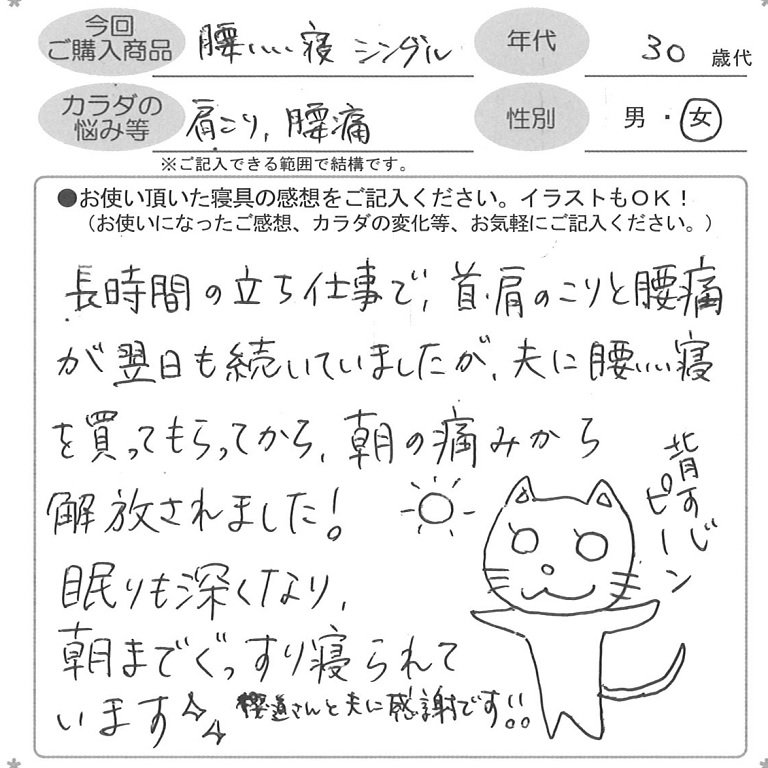 今回
ご購入商品
腰いいい寝 シングル
年代
30 歳代
カラダの
悩み等
肩こり, 腰痛
性別
男・女
※ご記入できる範囲で結構です。
●お使い頂いた寝具の感想をご記入ください。イラストもOK！
（お使いになったご感想、カラダの変化等、お気軽にご記入ください。）
長時間の立ち仕事で, 首・肩のこりと腰痛
が翌日も続いていましたが, 夫に腰いいい寝
を買ってもらってから, 朝の痛みから
解放されました!
背すじ
ピーン
眠りも深くなり,
朝までぐっすり寝られて
います
さんと夫に感謝です!!